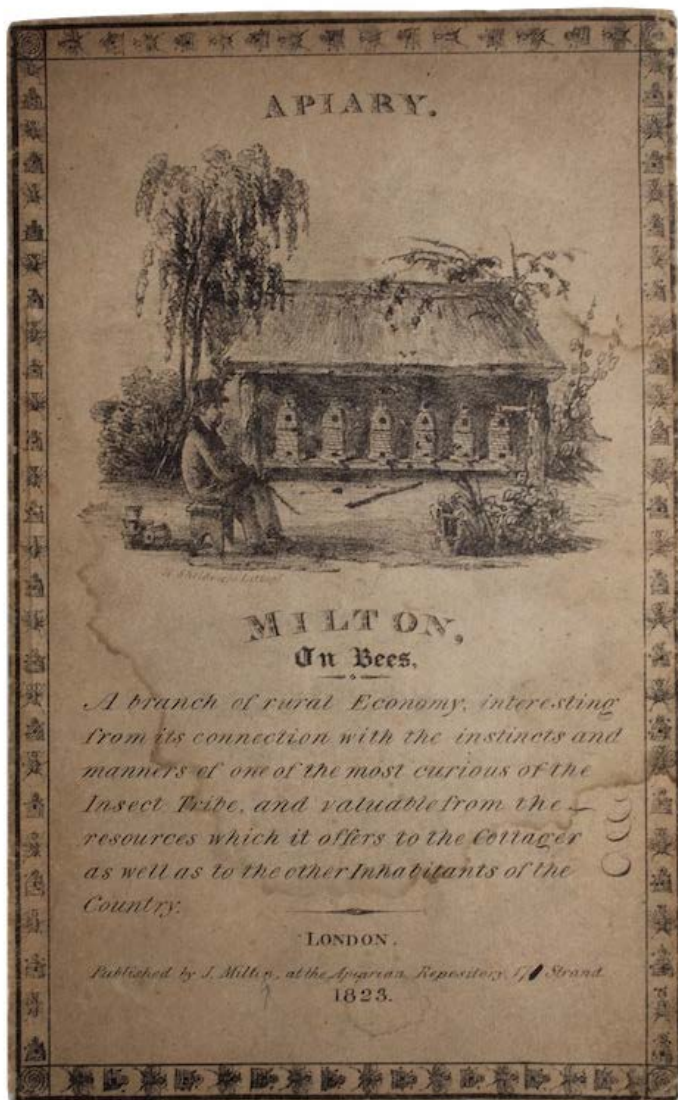 APIARY.
MILTON,
On Bees,
A branch of rural Economy, interesting
from its connection with the instincts and
manners of one of the most curious of the
Insect Tribe, and valuable from the
resources which it offers to the Cottager
as well as to the other Inhabitants of the
Country.
LONDON.
Published by J. Milton, at the Apiarian Repository, Strand.
1823.